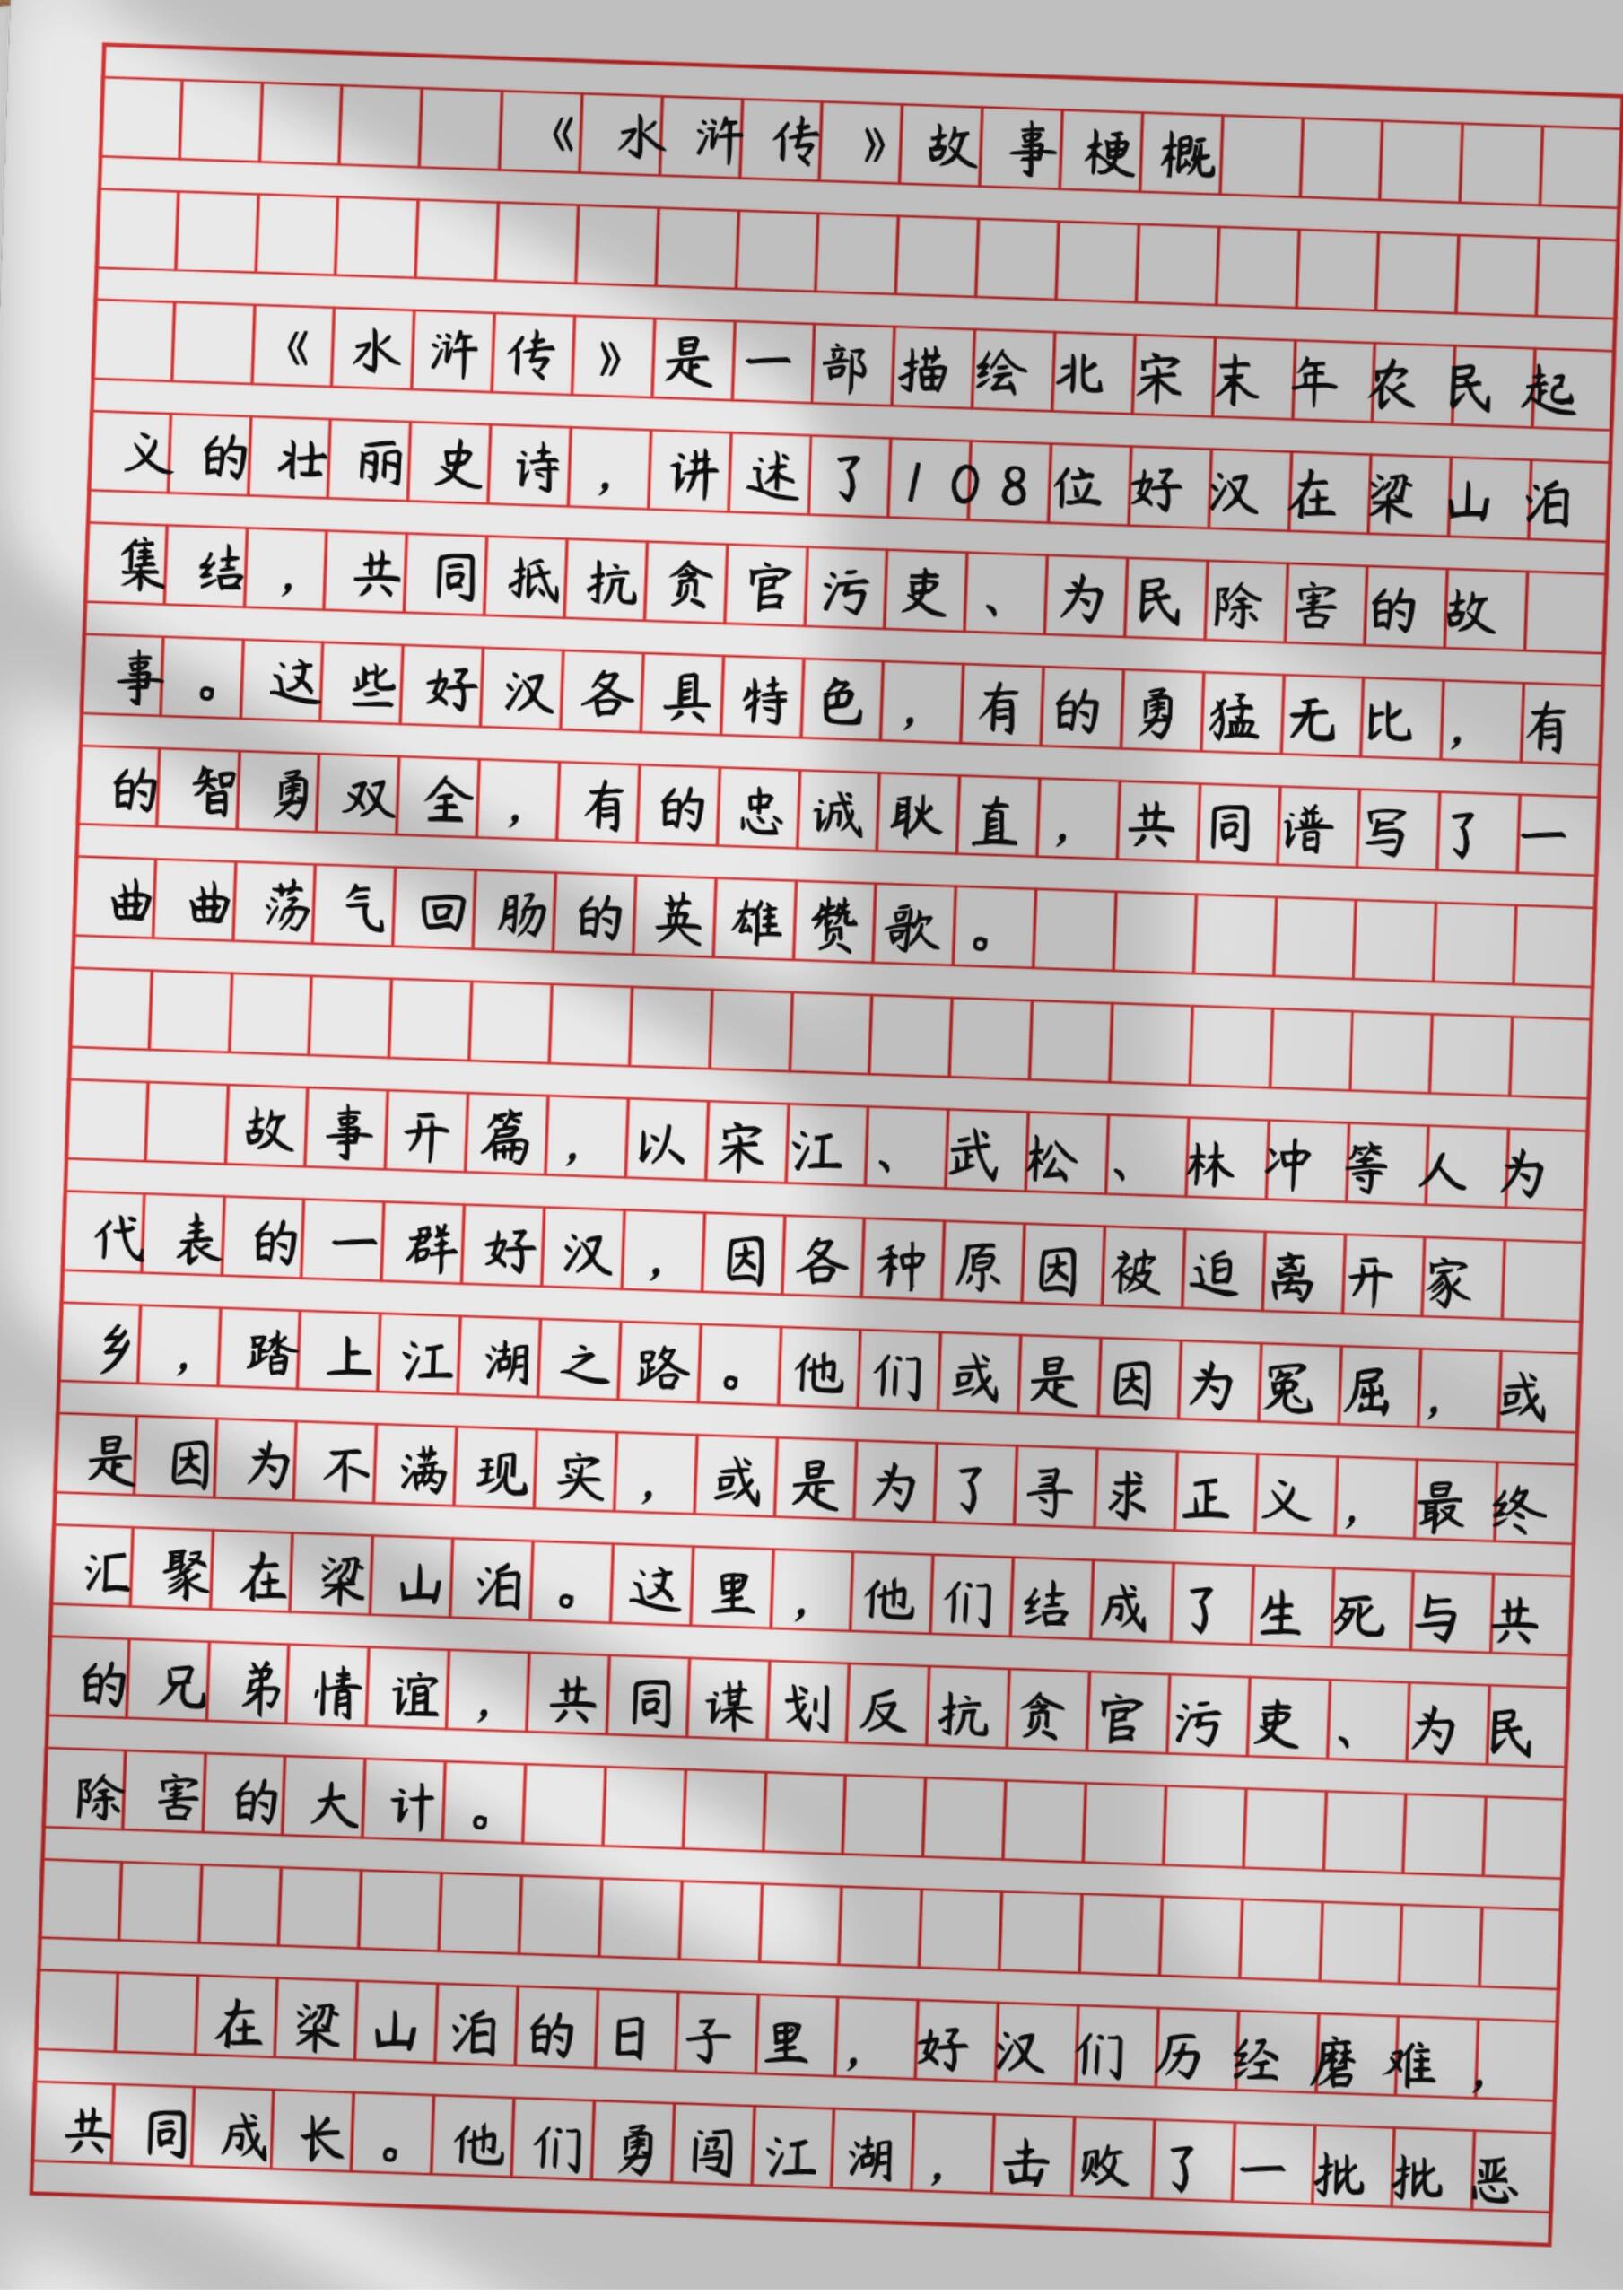 《水浒传》故事梗概
《水浒传》是一部描绘北宋末年农民起
义的壮丽史诗，讲述了108位好汉在梁山泊
集结，共同抵抗贪官污吏、为民除害的故
事。这些好汉各具特色，有的勇猛无比，有
的智勇双全，有的忠诚耿直，共同谱写了一
曲曲荡气回肠的英雄赞歌。
故事开篇，以宋江、武松、林冲等人为
代表的一群好汉，因各种原因被迫离开家
乡，踏上江湖之路。他们或是因为冤屈，或
是因为不满现实，或是为了寻求正义，最终
汇聚在梁山泊。这里，他们结成了生死与共
的兄弟情谊，共同谋划反抗贪官污吏、为民
除害的大计。
在梁山泊的日子里，好汉们历经磨难，
共同成长。他们勇闯江湖，击败了一批批恶